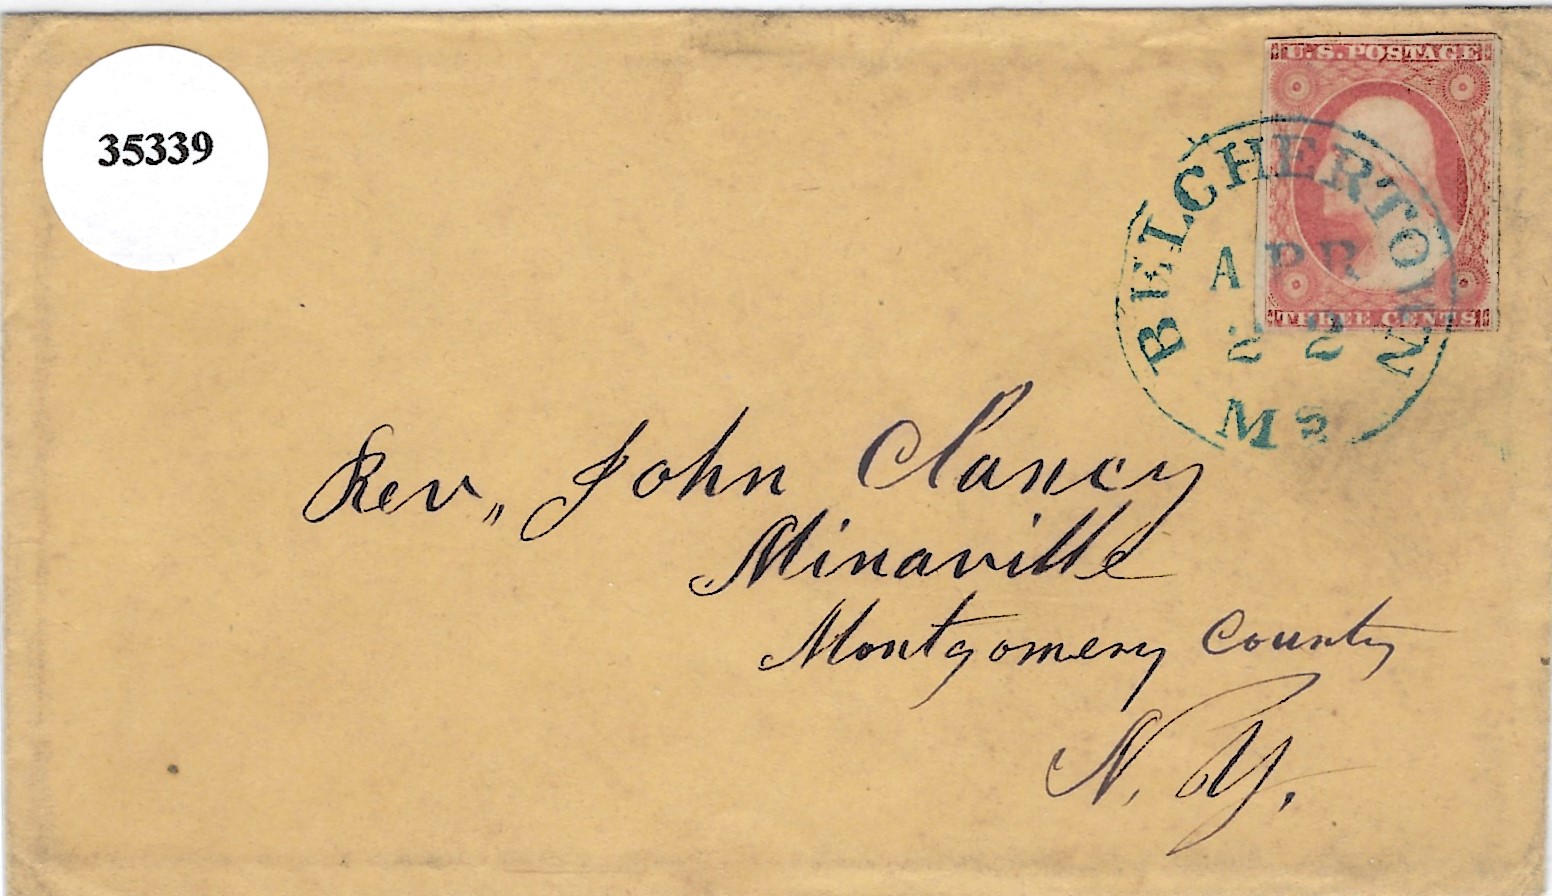 35339
U.S. POSTAGE
THREE CENTS
BELCHERTOWN
APR
22
Ms
Rev,, John Clancy
Minaville
Montgomery County
N. Y.